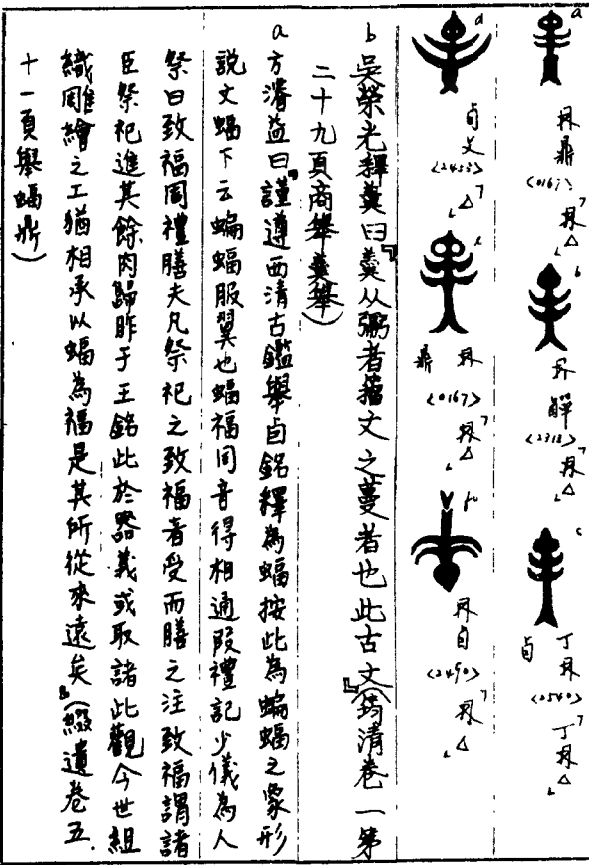 a
鼎
〈0167〉
b
觶
〈2312〉
c
丁
卣
〈2540〉
丁
d
卣文
〈2455〉
e
鼎
〈0167〉
f
卣
〈2490〉
b 吳榮光釋羹曰『羹从䰜者籀文之蔓者也此古文』(筠清卷一第
二十九頁商舉羹舉)
a 方濬益曰『謹遵西清古鑑舉卣銘釋為蝠按此為蝙蝠之象形
說文蝠下云蝙蝠服翼也蝠福同音得相通叚禮記少儀為人
祭曰致福周禮膳夫凡祭祀之致福者受而膳之注致福謂諸
臣祭祀進其餘肉歸胙于王銘此於器義或取諸此觀今世組
織雕繪之工猶相承以蝠為福是其所從來遠矣』(綴遺卷五.
十一頁舉蝠鼎)